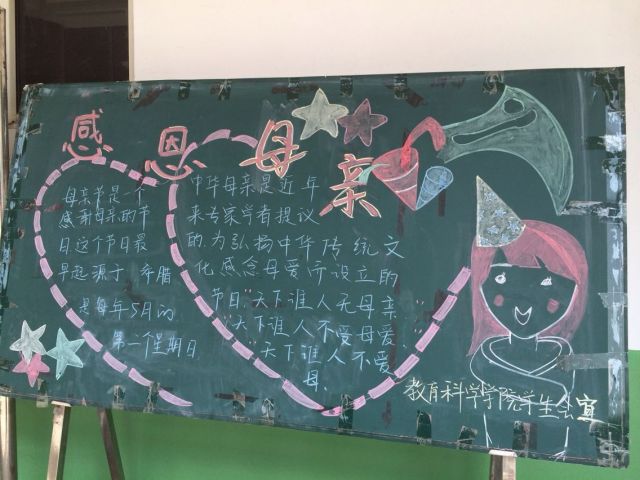 感恩母亲
母亲节是一个
感谢母亲的节
日这个节日最
早起源于 希腊
是每年5月的
第二个星期日
中华母亲是近年
来专家学者提议
的.为弘扬中华传统文
化感念母爱而设立的
节日."天下谁人无母亲
"天下谁人不爱母爱
"天下谁人不爱
母.
教育科学学院学生会宣